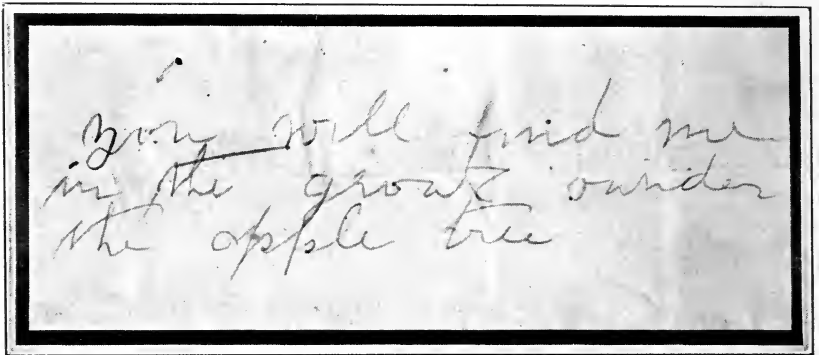 you will find me
in the groat under
the apple tree